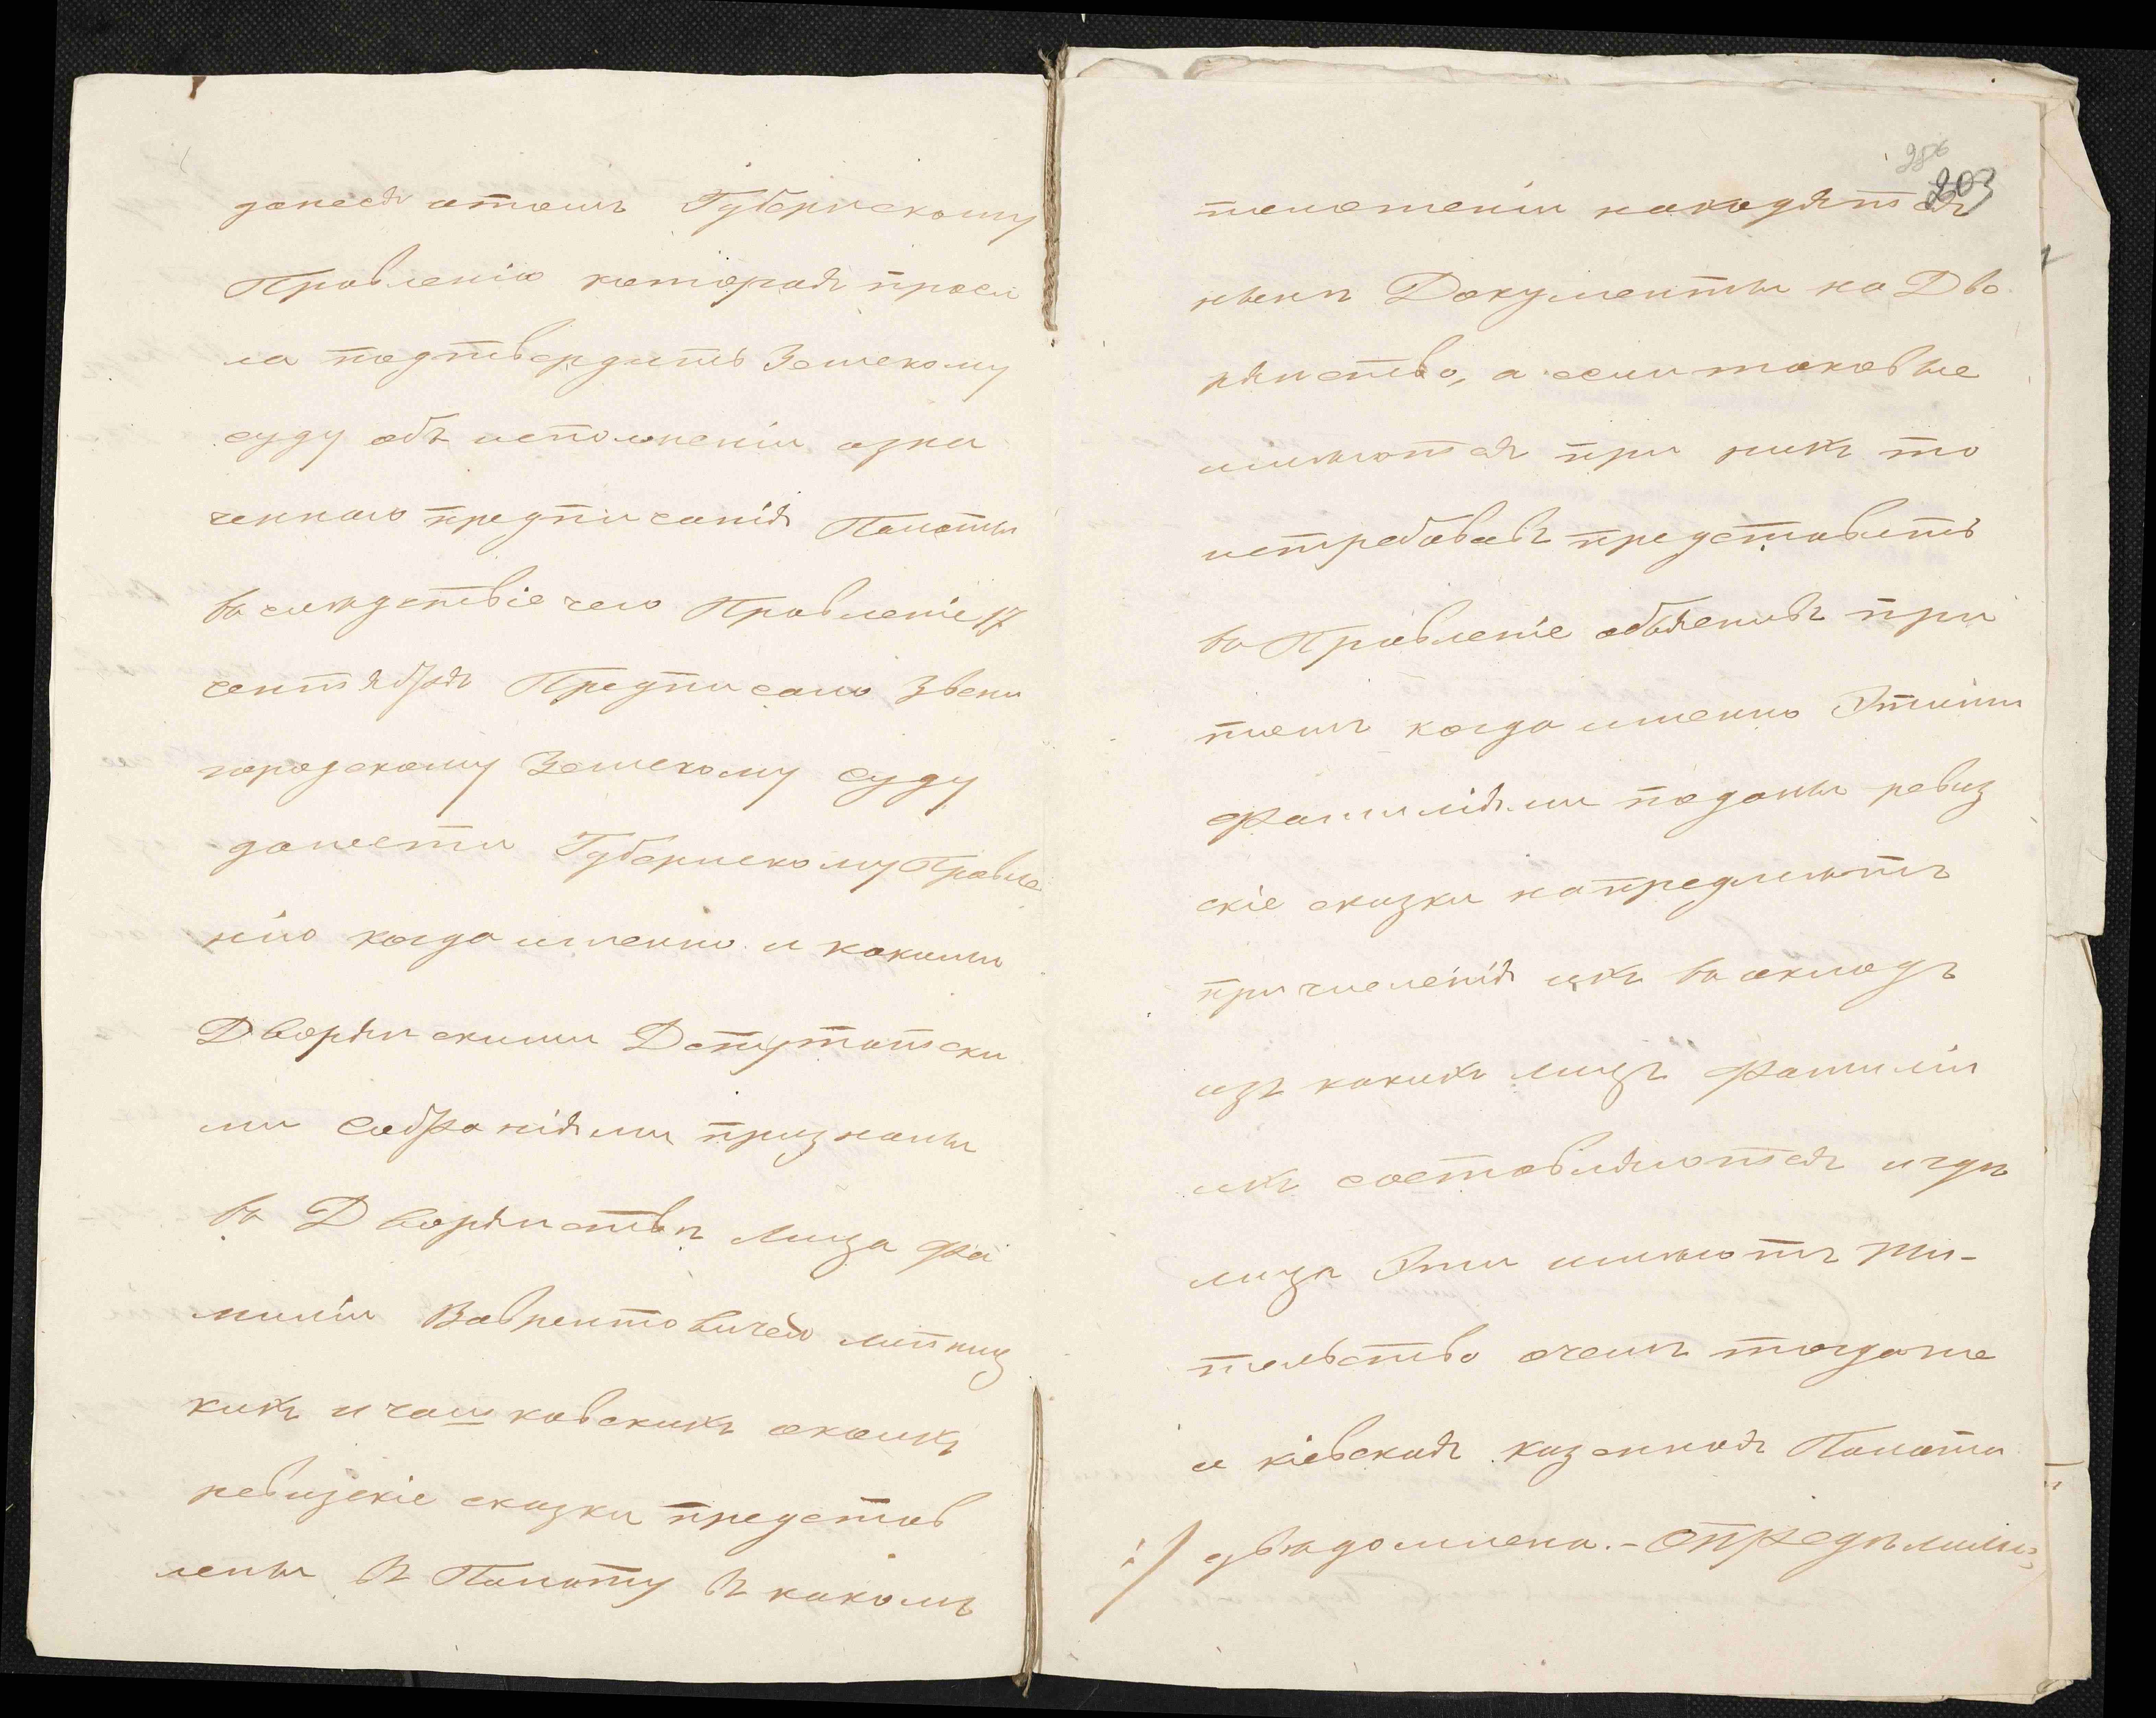 донеся отомъ Губернскому
Правленію которая проси
ла подтвердить Земскому
суду объ исполненіи озна
ченнаго предписанія Палаты
въ следствіе чего Правленіе 17
сентября Предписало Звени
городскому Земскому суду
донести Губернскому Правле
нію когда именно и какими
Дворянскими Депутатски
ми Собраніями признаны
въ Дворянстве Лица фа
миліи Вавренто вичей липниц
кихъ и чашковскихъ окоихъ
ревизскіе сказки представ
лены въ Палату въ какомъ
положеніи находятся
ныне Документы на Дво
рянство, а если таковые
имеются при нихъ то
истребовавъ представить
въ Правленіе объяснивъ при
томъ когда именно Этими
Фамиліями поданы ревиз
скіе сказки на предметъ
причисленія ихъ въ окладъ
изъ какихъ лицъ Фамиліи
ихъ составляются и где
лица Эти имеютъ жи-
тельство очемъ тогда же
и кіевская казенная Палата
:/ уведомлена.- Определили:
286
203